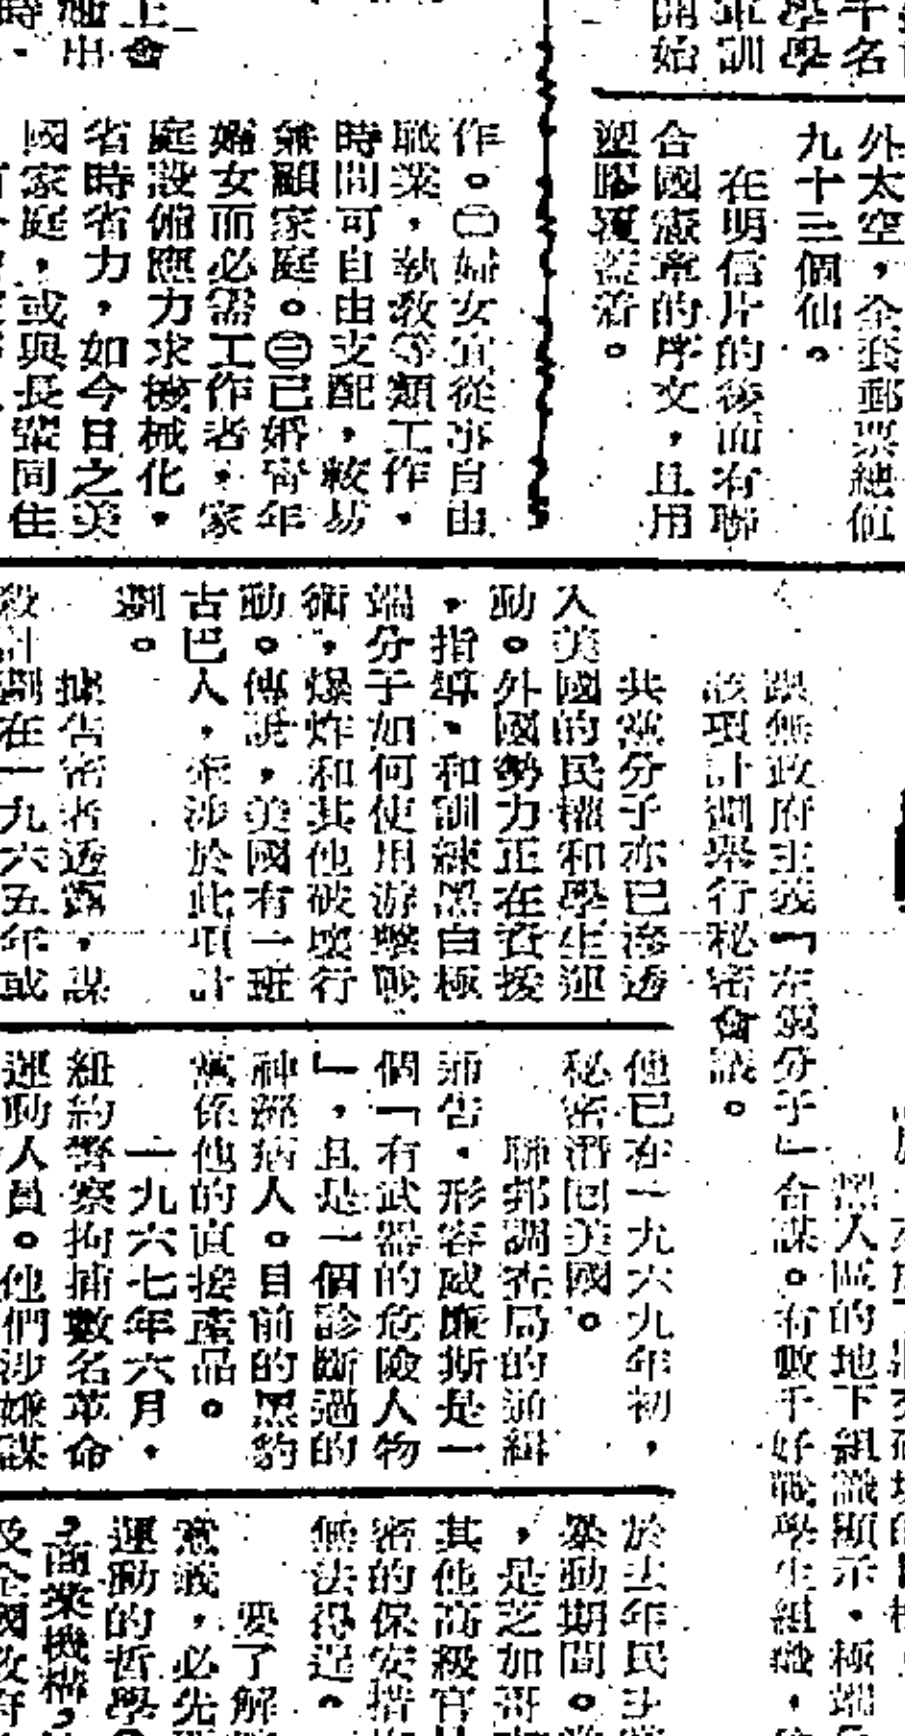 開始
軍訓
學學
千名
外太空，全套郵票總值
九十三個仙。
在明信片的後面有聯
合國憲章的序文，且用
塑膠覆蓋着。
上會
作。㊁婦女宜從事自由
職業，執教等類工作，
時間可自由支配，較易
兼顧家庭。㊂已婚青年
婦女而必需工作者，家
庭設備應力求機械化，
省時省力，如今日之美
國家庭，或與長輩同住
跟無政府主義「左翼分子」合謀。有數千好戰學生組織，
該項計劃舉行秘密會議。
黑人區的地下組識顯示，極端
共黨分子亦已滲透
入美國的民權和學生運
動。外國勢力正在資援
，指導、和訓練黑白極
端分子如何使用游擊戰
術，爆炸和其他破壞行
動。傳說，美國有一班
古巴人，牽涉於此項計
劃。
據告密者透露，謀
殺計劃在一九六五年或
他已在一九六九年初，
秘密潛囘美國。
聯邦調查局的通緝
通告，形容威廉斯是一
個「有武器的危險人物
」，且是一個診斷過的
神經病人。目前的黑豹
黨係他的直接產品。
一九六七年六月，
紐約警察拘捕數名革命
運動人員。他們涉嫌謀
於去年民主黨
暴動期間。當
，是芝加哥
其他高級官
密的保安措
無法得逞。
要了解
意義，必先
運動的哲學。
，商業機構，
及全國政府